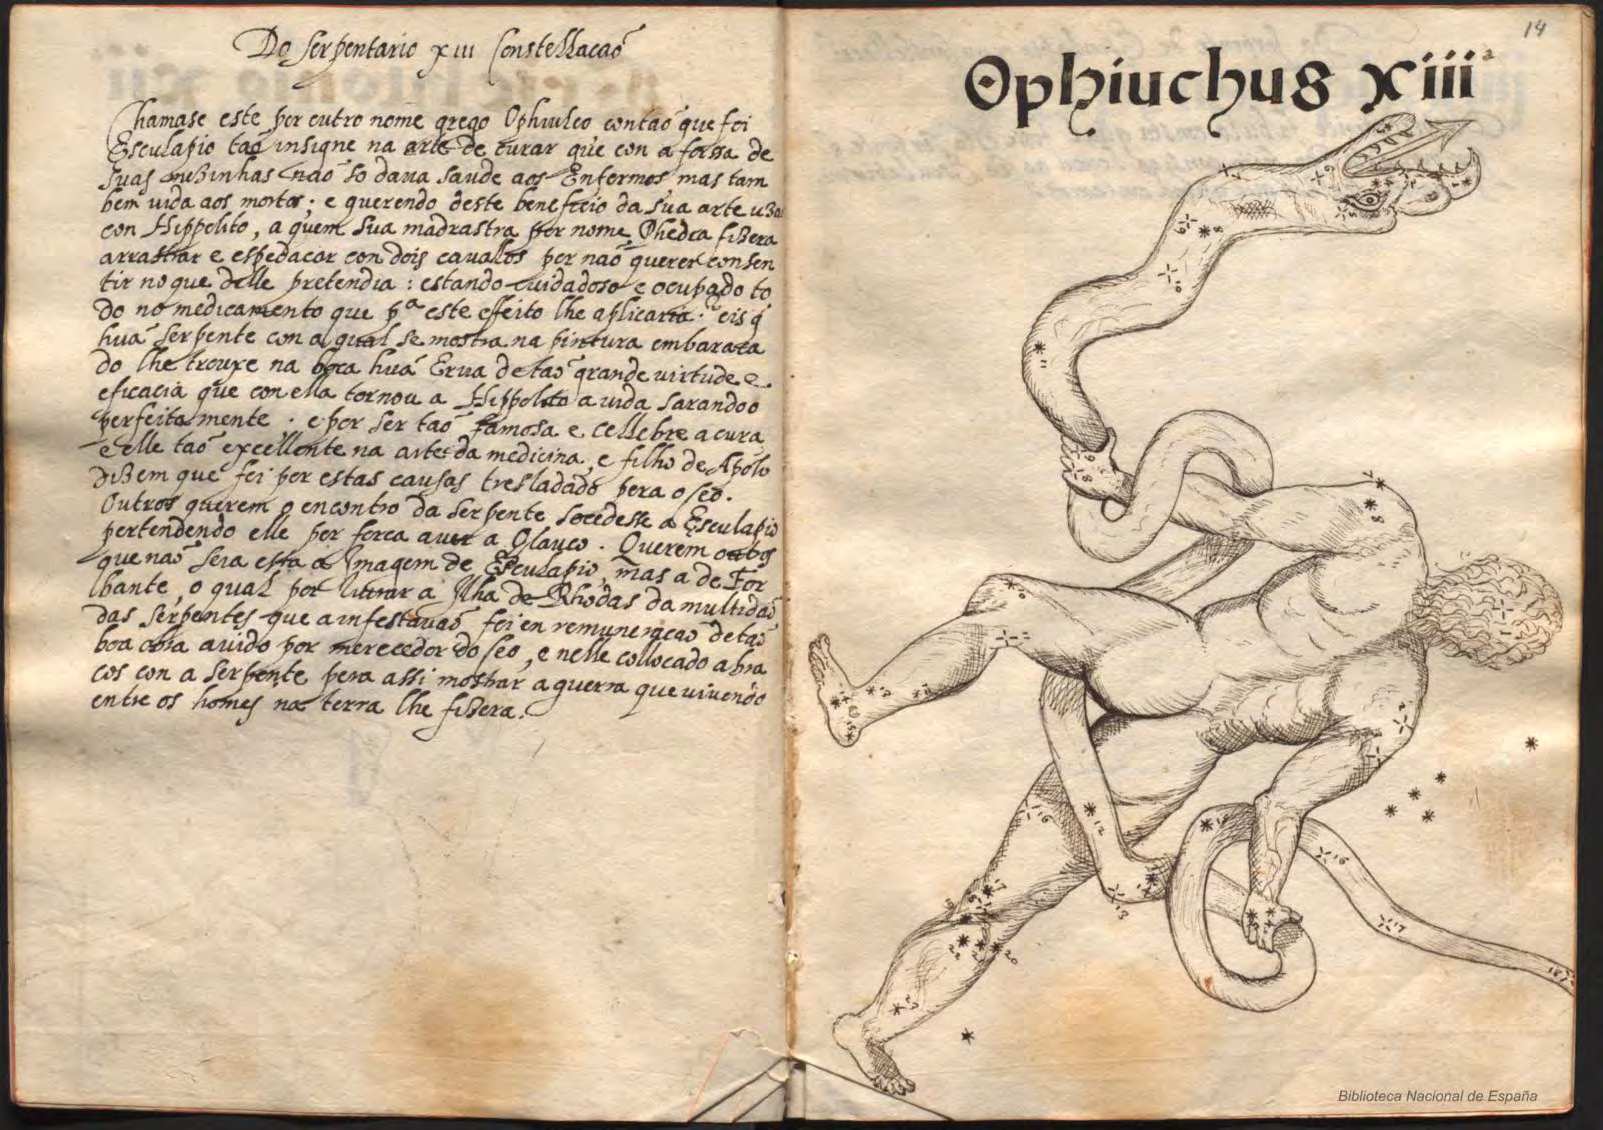 Do Serpentario xiii Constellacaõ
Chamase este por outro nome grego Ophiulco contaõ que foi
Esculapio taõ insigne na arte de curar que con a forssa de
suas mezinhas naõ so daua saude aos Enfermos mas tam
bem vida aos mortos; e querendo deste beneficio da sua arte uzar
con Hippolito, a quem sua madrastra por nome Phedra fizera
arrastrar e espedaçar con dois cavalos por naõ querer consen
tir no que delle pretendia: estando cuidadoso e ocupado to
do no medicamento que pª este effeito lhe aplicaria: eis q̃
huã serpente con a qual se mostra na pintura embaraça
do lhe trouxe na boca huã Erua de taõ grande uirtude e
eficacia que con ella tornou a Hippolito a uida sarandoo
perfeitamente. e por ser taõ famosa e cellebre a cura
e elle taõ excellente na arte da medicina, e filho de Apolo
dizem que foi por estas causas tresladado pera o seo.
Outros querem o encontro da serpente socedesse a Esculapio
pertendendo elle por força auer a Glauco. Querem outros
que naõ seia esta a Imagem de Esculapio, mas a de For
bante, o qual por liurar a Ilha de Rhodas da multidaõ
das serpentes que a infestauaõ foi en remuneraçaõ de taõ
boa obra auido por merecedor do seo, e nelle collocado abra
cos con a serpente pera assi mostrar a guerra que uivendo
entre os homes na terra lhe fizera.
14
Ophiuchus xiiiª
9
8
10
11
9
18
7
8
10
11
12
13
16
17
20
15
16
17
18
Biblioteca Nacional de España